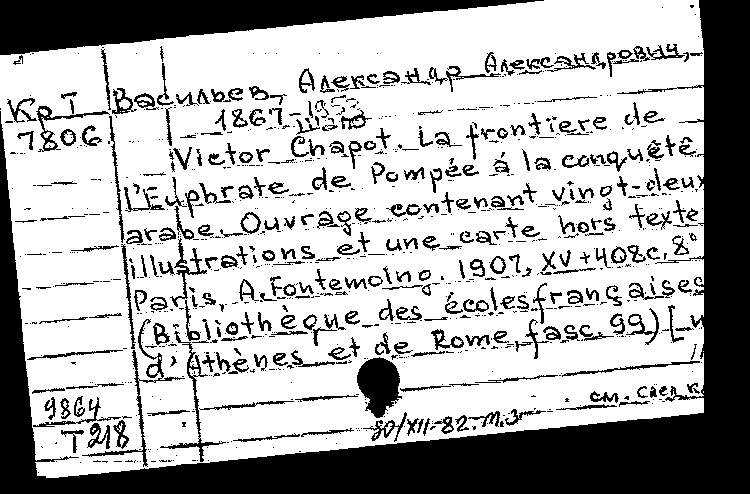 КрТ Васильев, Александр Александрович,
7806. 1867-1953
Victor Chapot. La frontïere de
l'Euphrate de Pompée á la conquêtê
arabe. Ouvrage contenant vingt-deux
illustrations et une carte hors texte
Paris, A. Fontemoing. 1907, XV+408с. 8°
(Bibliothèque des écoles françaises
d'Athènes et de Rome, fasc. 99) [
9864 см. след. к
Т218 30/XII-82-м.з